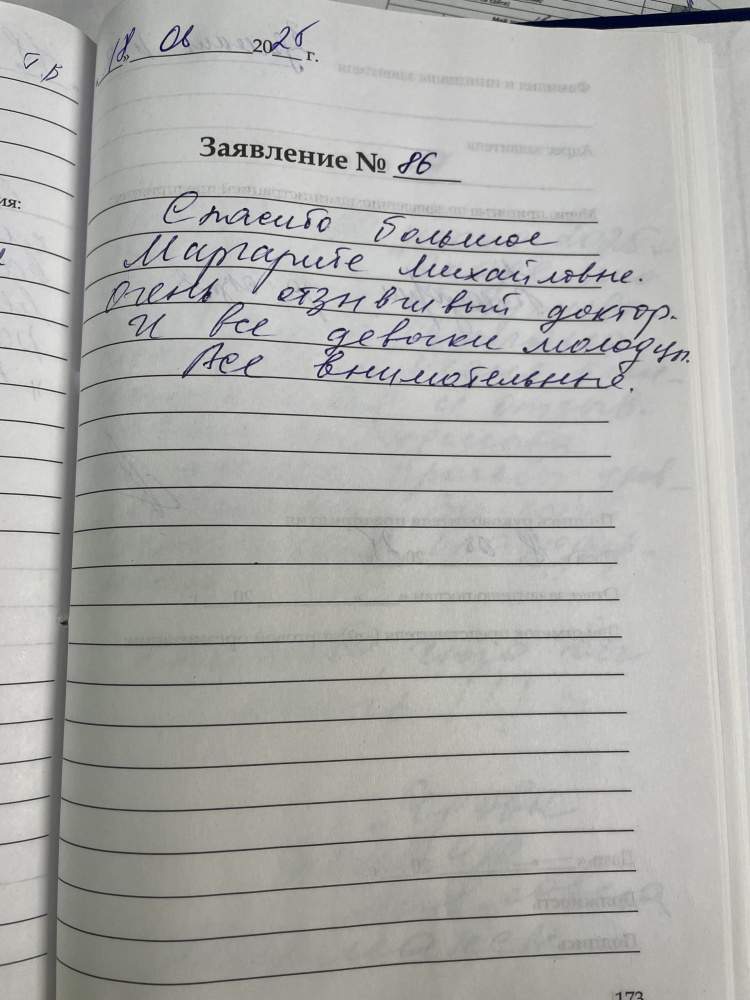 18 06 2025 г.
Заявление № 86
Спасибо большое
Маргарите Михайловне.
очень отзывчивый доктор.
И все девочки молодцы.
Все внимательные.
ия:
173